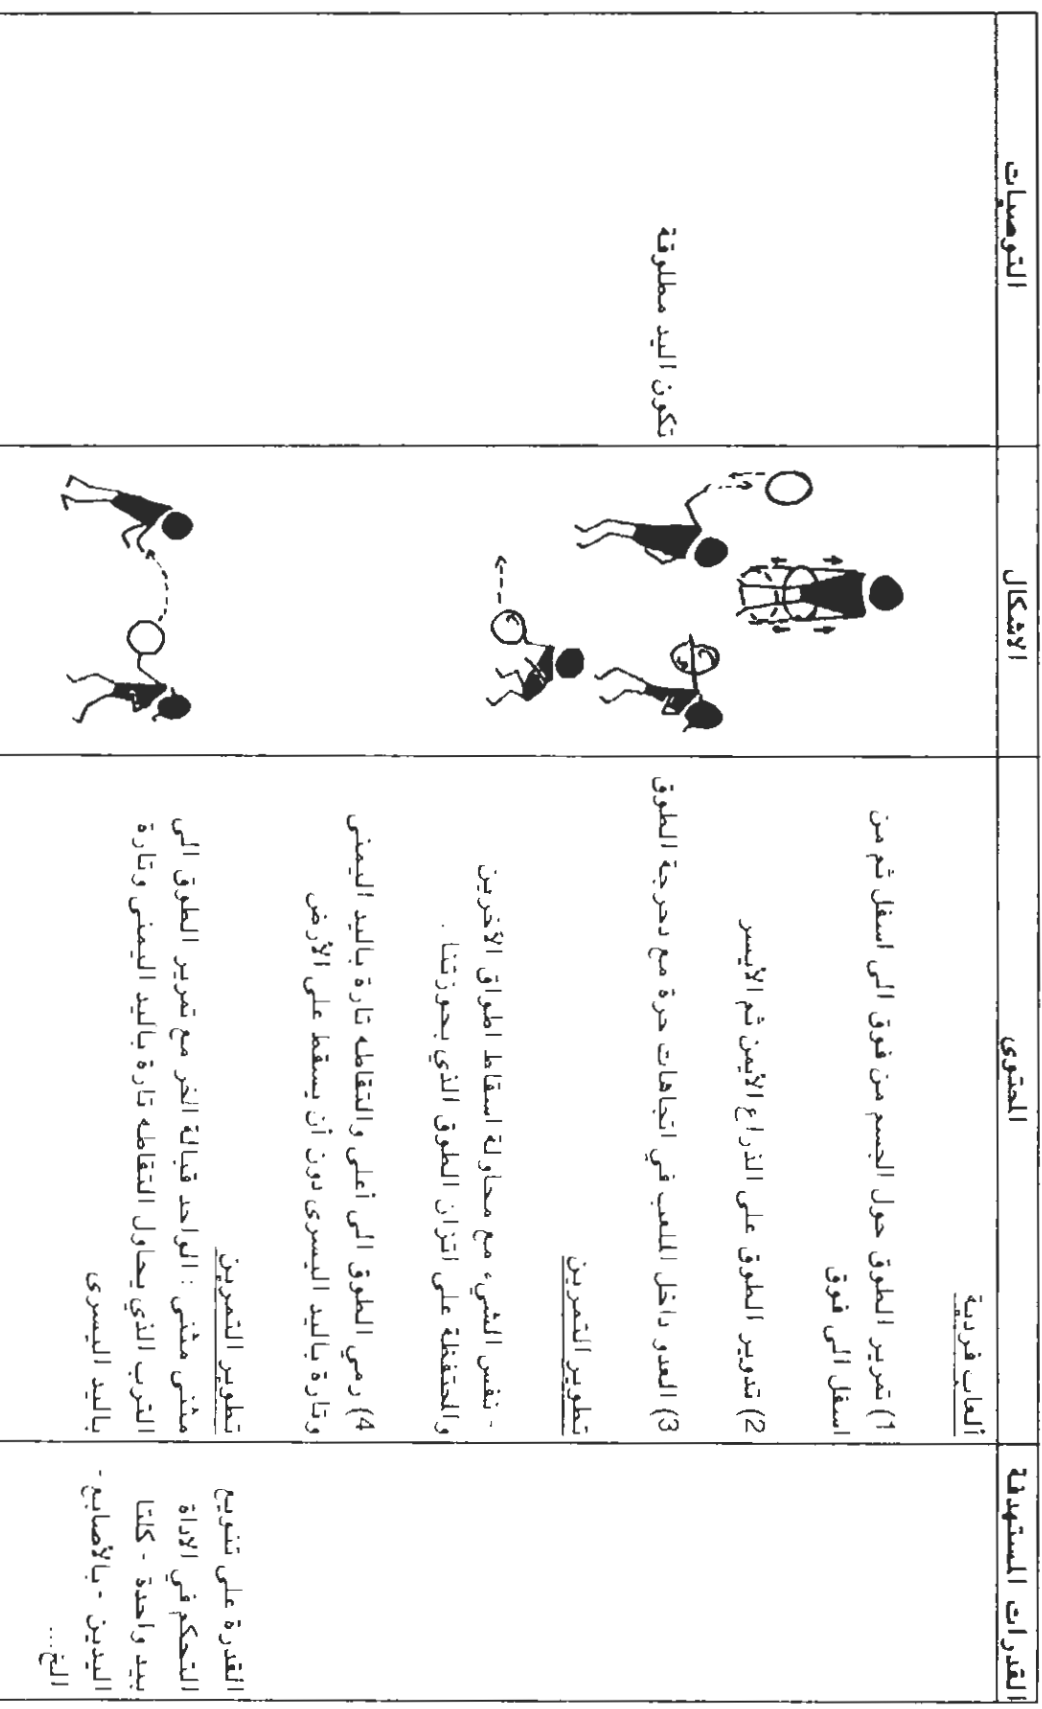 القدرات المستهدفة
المحتوى
الاشكال
التوصيات
القدرة على تنويع
التحكم في الاداة
بيد واحدة - كلتا
اليدين - بالأصابع -
الخ...
ألعاب فردية
1) تمرير الطوق حول الجسم من فوق الى اسفل ثم من
اسفل الى فوق
2) تدوير الطوق على الذراع الأيمن ثم الأيسر
3) العدو داخل الملعب في اتجاهات حرة مع دحرجة الطوق
تطوير التمرين
- نفس الشيء مع محاولة اسقاط اطواق الأخرين
والحتفظة على اتزان الطوق الذي بحوزتنا .
4) رمي الطوق الى أعلى والتقاطه تارة باليد اليمنى
وتارة باليد اليسرى دون أن يسقط على الأرض
تطوير التمرين
مثنى مثنى : الواحد قبالة الخر مع تمرير الطوق الى
الترب الذي يحاول التقاطه تارة باليد اليمنى وتارة
باليد اليسرى
تكون اليد مطلوقة